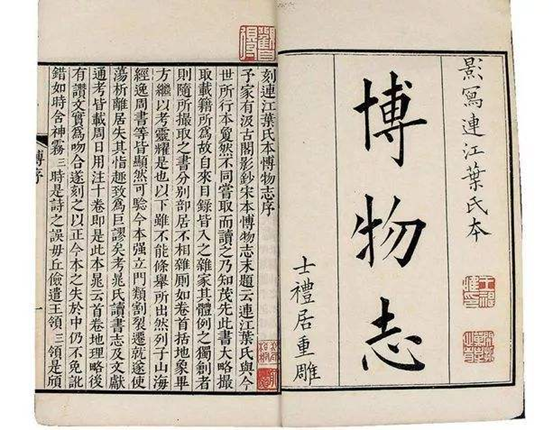 影寫連江葉氏本
博物志
士禮居重雕
刻連江葉氏本博物志序
予家有汲古閣影鈔宋本博物志末題云連江葉氏與今
世所行本夐然不同嘗取而讀之乃知茂先此書大略撮
取載籍所為故自來目錄皆入之雜家其體例之獨創者
則隨所撮取之書分別部居不相雜厠如卷首括地象畢
方繼以考靈耀是也以下雖不能條舉所出然列子山海
經逸周書等皆顯然可驗今本强立門類割裂遷就遂使
蕩析離居失其恉趣致為巨謬矣考晁氏讀書志及文獻
通考皆載周日用注十卷即是此本晁云首卷地理略後
有讚文實為吻合遂刻之以正今本之失於中仍不免訛
錯如時含神霧三時是詩之誤毋丘儉遣王領三領是頎
博序
一